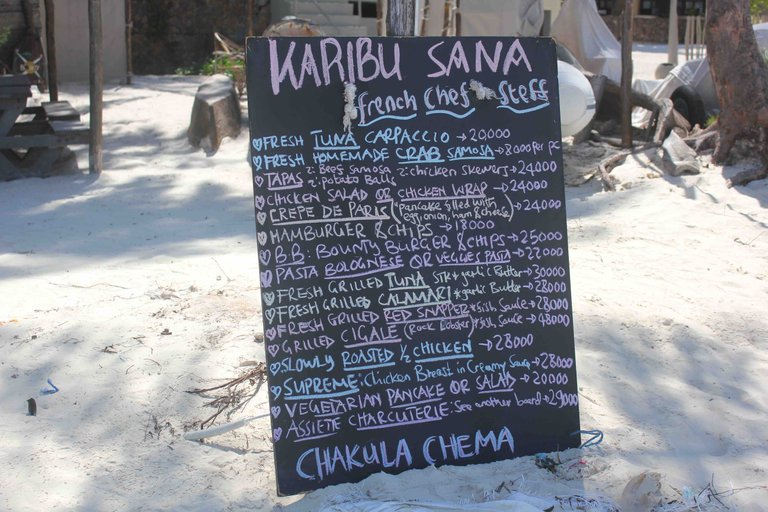 KARIBU SANA
french Chef Steff
FRESH TUNA CARPACCIO → 20,000
FRESH HOMEMADE CRAB SAMOSA → 8000 Per pc
TAPAS 2: Beef Samosa 2: chicken skewers → 24000
2: Potato Balls
CHICKEN SALAD OR CHICKEN WRAP → 24000
CREPE DE PARIS (Pancake filled with egg, onion, ham & cheese) → 24,000
HAMBURGER & CHIPS → 18000
B.B: BOUNTY BURGER & CHIPS → 25000
PASTA BOLOGNESE OR VEGGIES PASTA → 22000
FRESH GRILLED TUNA Stk & garlic Butter → 30000
FRESH GRILLED CALAMARI & garlic Butter → 28000
FRESH GRILLED RED SNAPPER & fish Sauce → 28000
GRILLED CIGALE (Rock lobster) & fish Sauce → 48000
SLOWLY ROASTED ½ CHICKEN → 28000
SUPREME: Chicken Breast in Creamy Sauce → 28000
VEGETARIAN PANCAKE OR SALAD → 20000
ASSIETE CHARCUTERIE: See another board → 29000
CHAKULA CHEMA